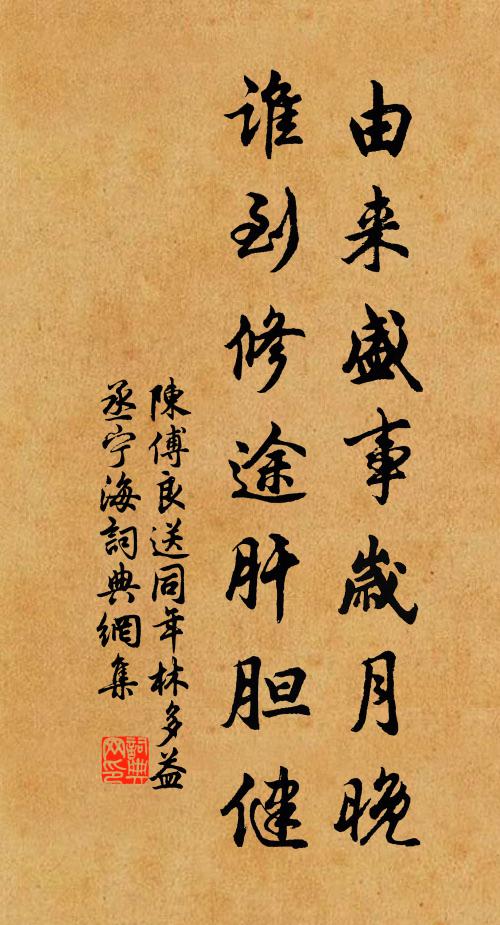 由来盛事歳月晚
谁到修途肝胆健
陳傅良送同年林多益
丞宁海詞典網集
詞典网印